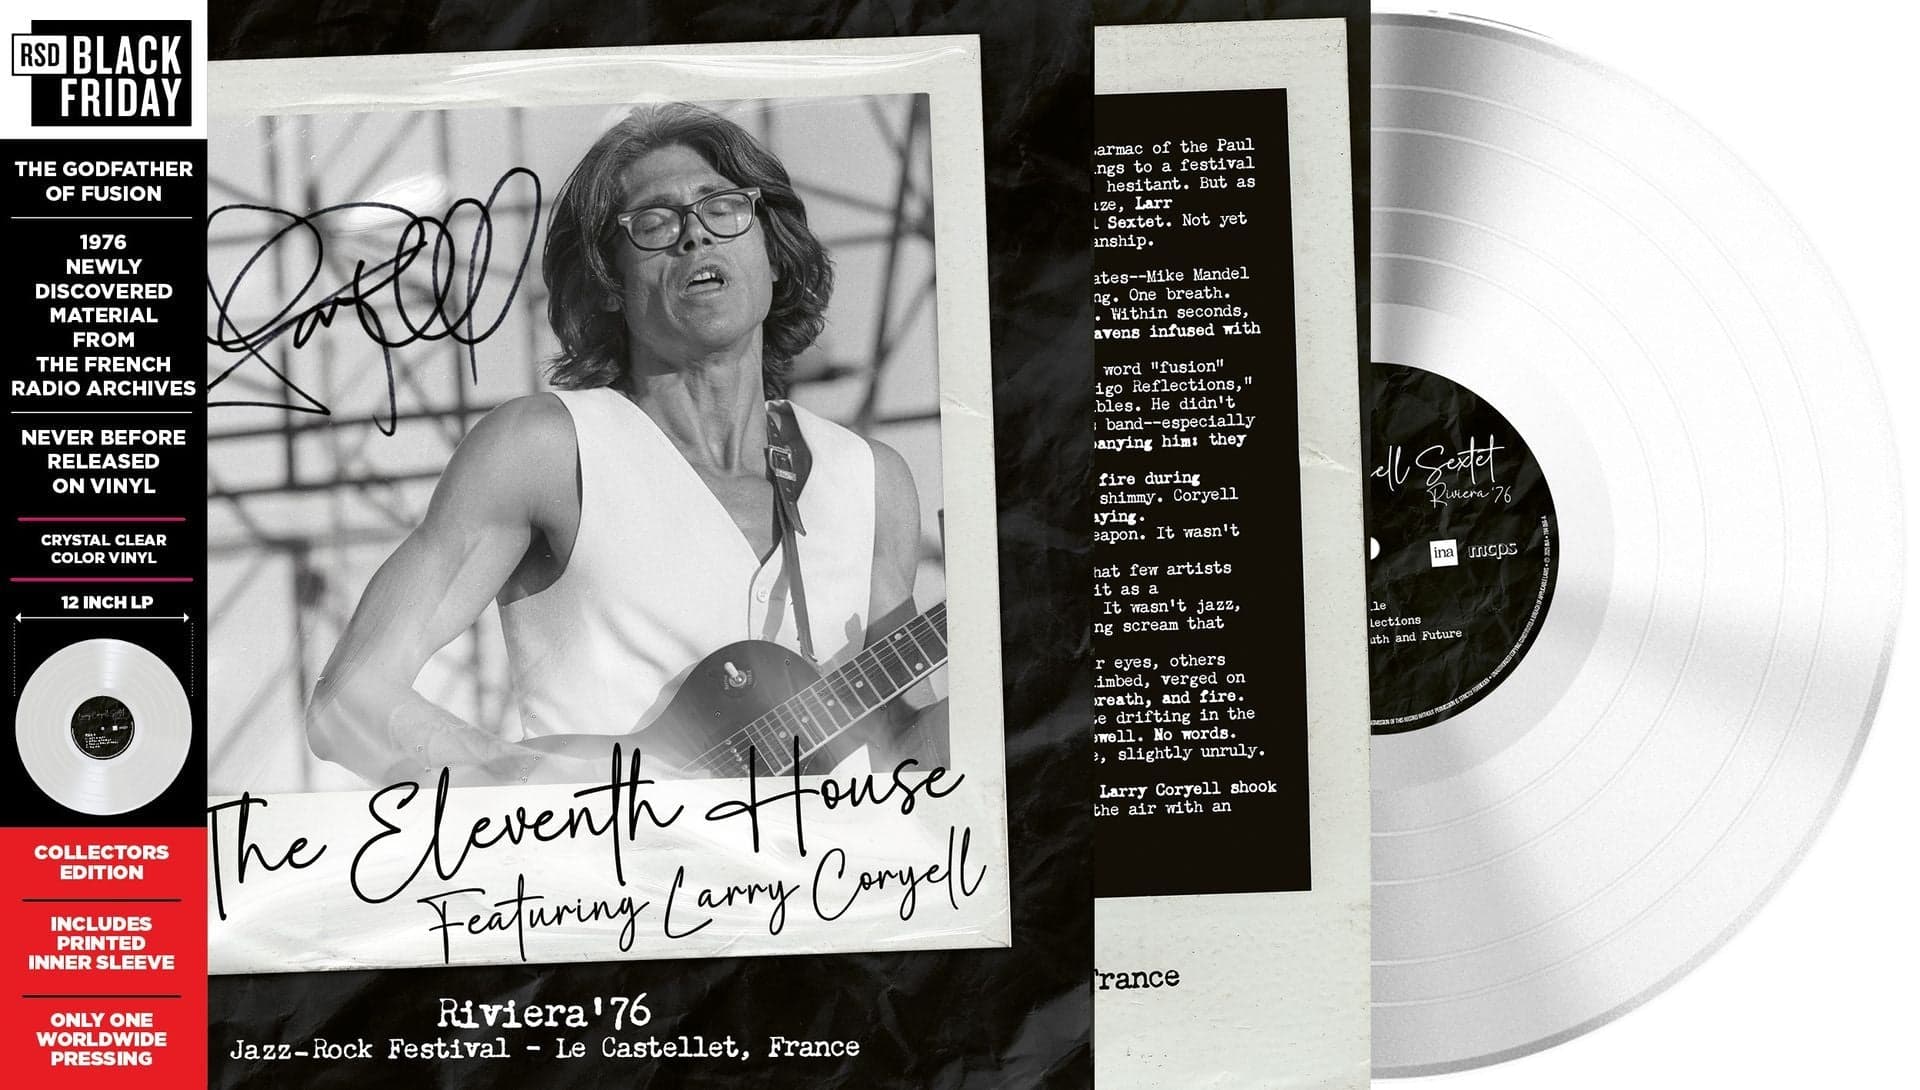 RSD BLACK
FRIDAY
THE GODFATHER
OF FUSION
1976
NEWLY
DISCOVERED
MATERIAL
FROM
THE FRENCH
RADIO ARCHIVES
NEVER BEFORE
RELEASED
ON VINYL
CRYSTAL CLEAR
COLOR VINYL
12 INCH LP
COLLECTORS
EDITION
INCLUDES
PRINTED
INNER SLEEVE
ONLY ONE
WORLDWIDE
PRESSING
Coryell
The Eleventh House
Featuring Larry Coryell
Riviera'76
Jazz-Rock Festival - Le Castellet, France
armac of the Paul
ngs to a festival
hesitant. But as
ze, Larr
l Sextet. Not yet
anship.
ates--Mike Mandel
ng. One breath.
. Within seconds,
avens infused with
word "fusion"
igo Reflections,"
bles. He didn't
s band--especially
panying him: they
fire during
shimmy. Coryell
aying.
eapon. It wasn't
hat few artists
it as a
It wasn't jazz,
ng scream that
r eyes, others
imbed, verged on
breath, and fire.
e drifting in the
ewell. No words.
e, slightly unruly.
Larry Coryell shook
the air with an
France
ell Sextet
Riviera '76
ina mcps
le
lections
uth and Future